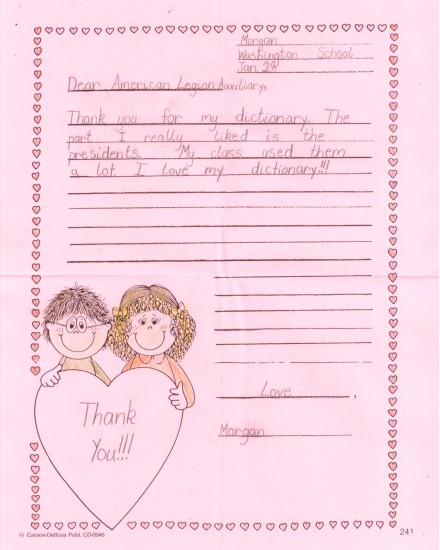 Morgan
Washington School
Jan. 28
Dear American Legion Auxiliary,
Thank you for my dictionary. The
part I really liked is the
presidents. My class used them
a lot. I love my dictionary!!!
Love ,
Morgan
Thank
You!!!
© Carson-Dellosa Publ. CD-0946
241